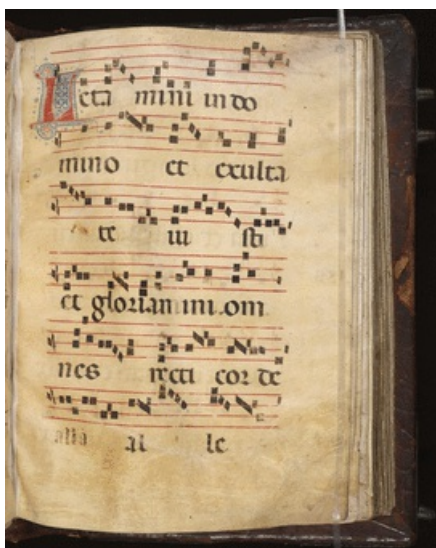 Leta mini in do
mino et exulta
te iu sti
et gloriamini om
nes recti cor de
al le